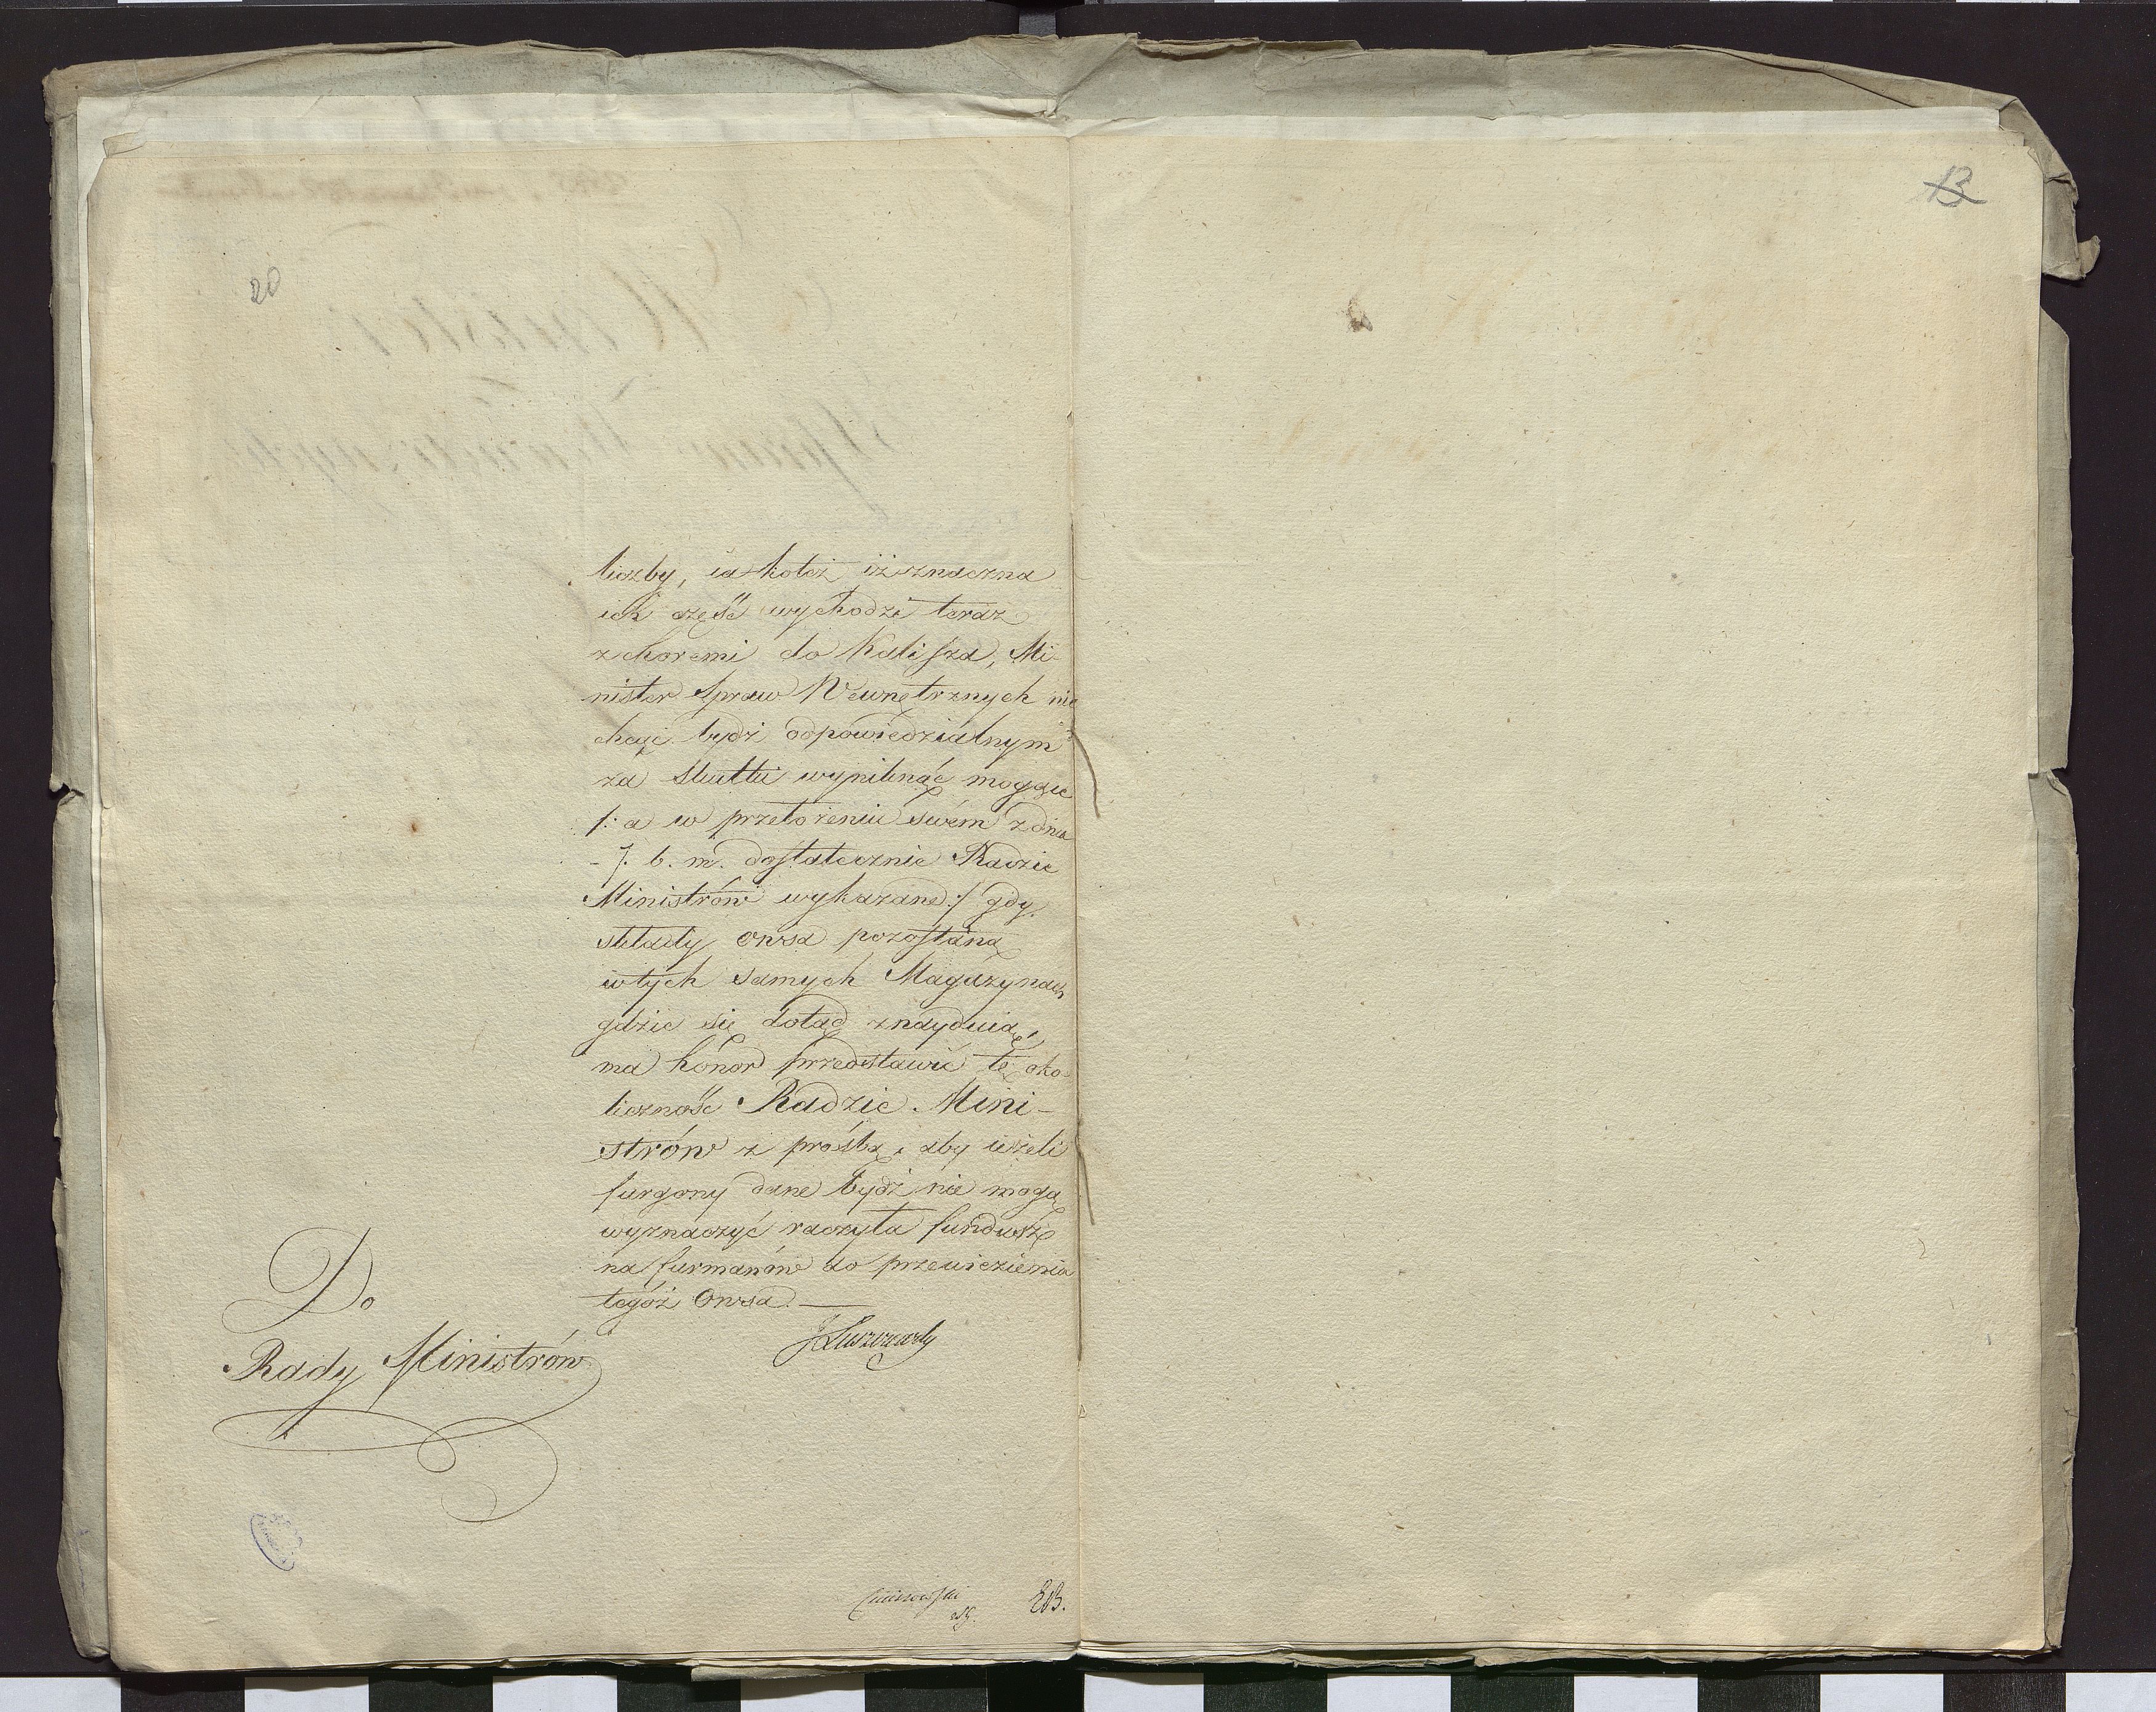 13
20
liczby, iakoteż iż znaczna
ich część wychodzi teraz
z choremi do Kalisza, Mi-
nister Spraw Wewnętrznych nie
chcąc bydź odpowiedzialnym
za skutki wyniknąć mogące
/: a w przełożeniu swém z dnia
- 7. b. m. dostatecznie Radzie
Ministrów wykazane :/ gdy
składy owsa pozostaną
w tych samych Magazynach
gdzie się dotąd znayduią,
ma honor przedstawić tę oko-
liczność Radzie Mini-
strów z prośbą, aby ieżeli
furgony dane bydź nie mogą
wyznaczyć raczyła fundusz
na furmanów do przewiezienia
tegóż Owsa. —
JŁuszczewsky
Do
Rady Ministrów